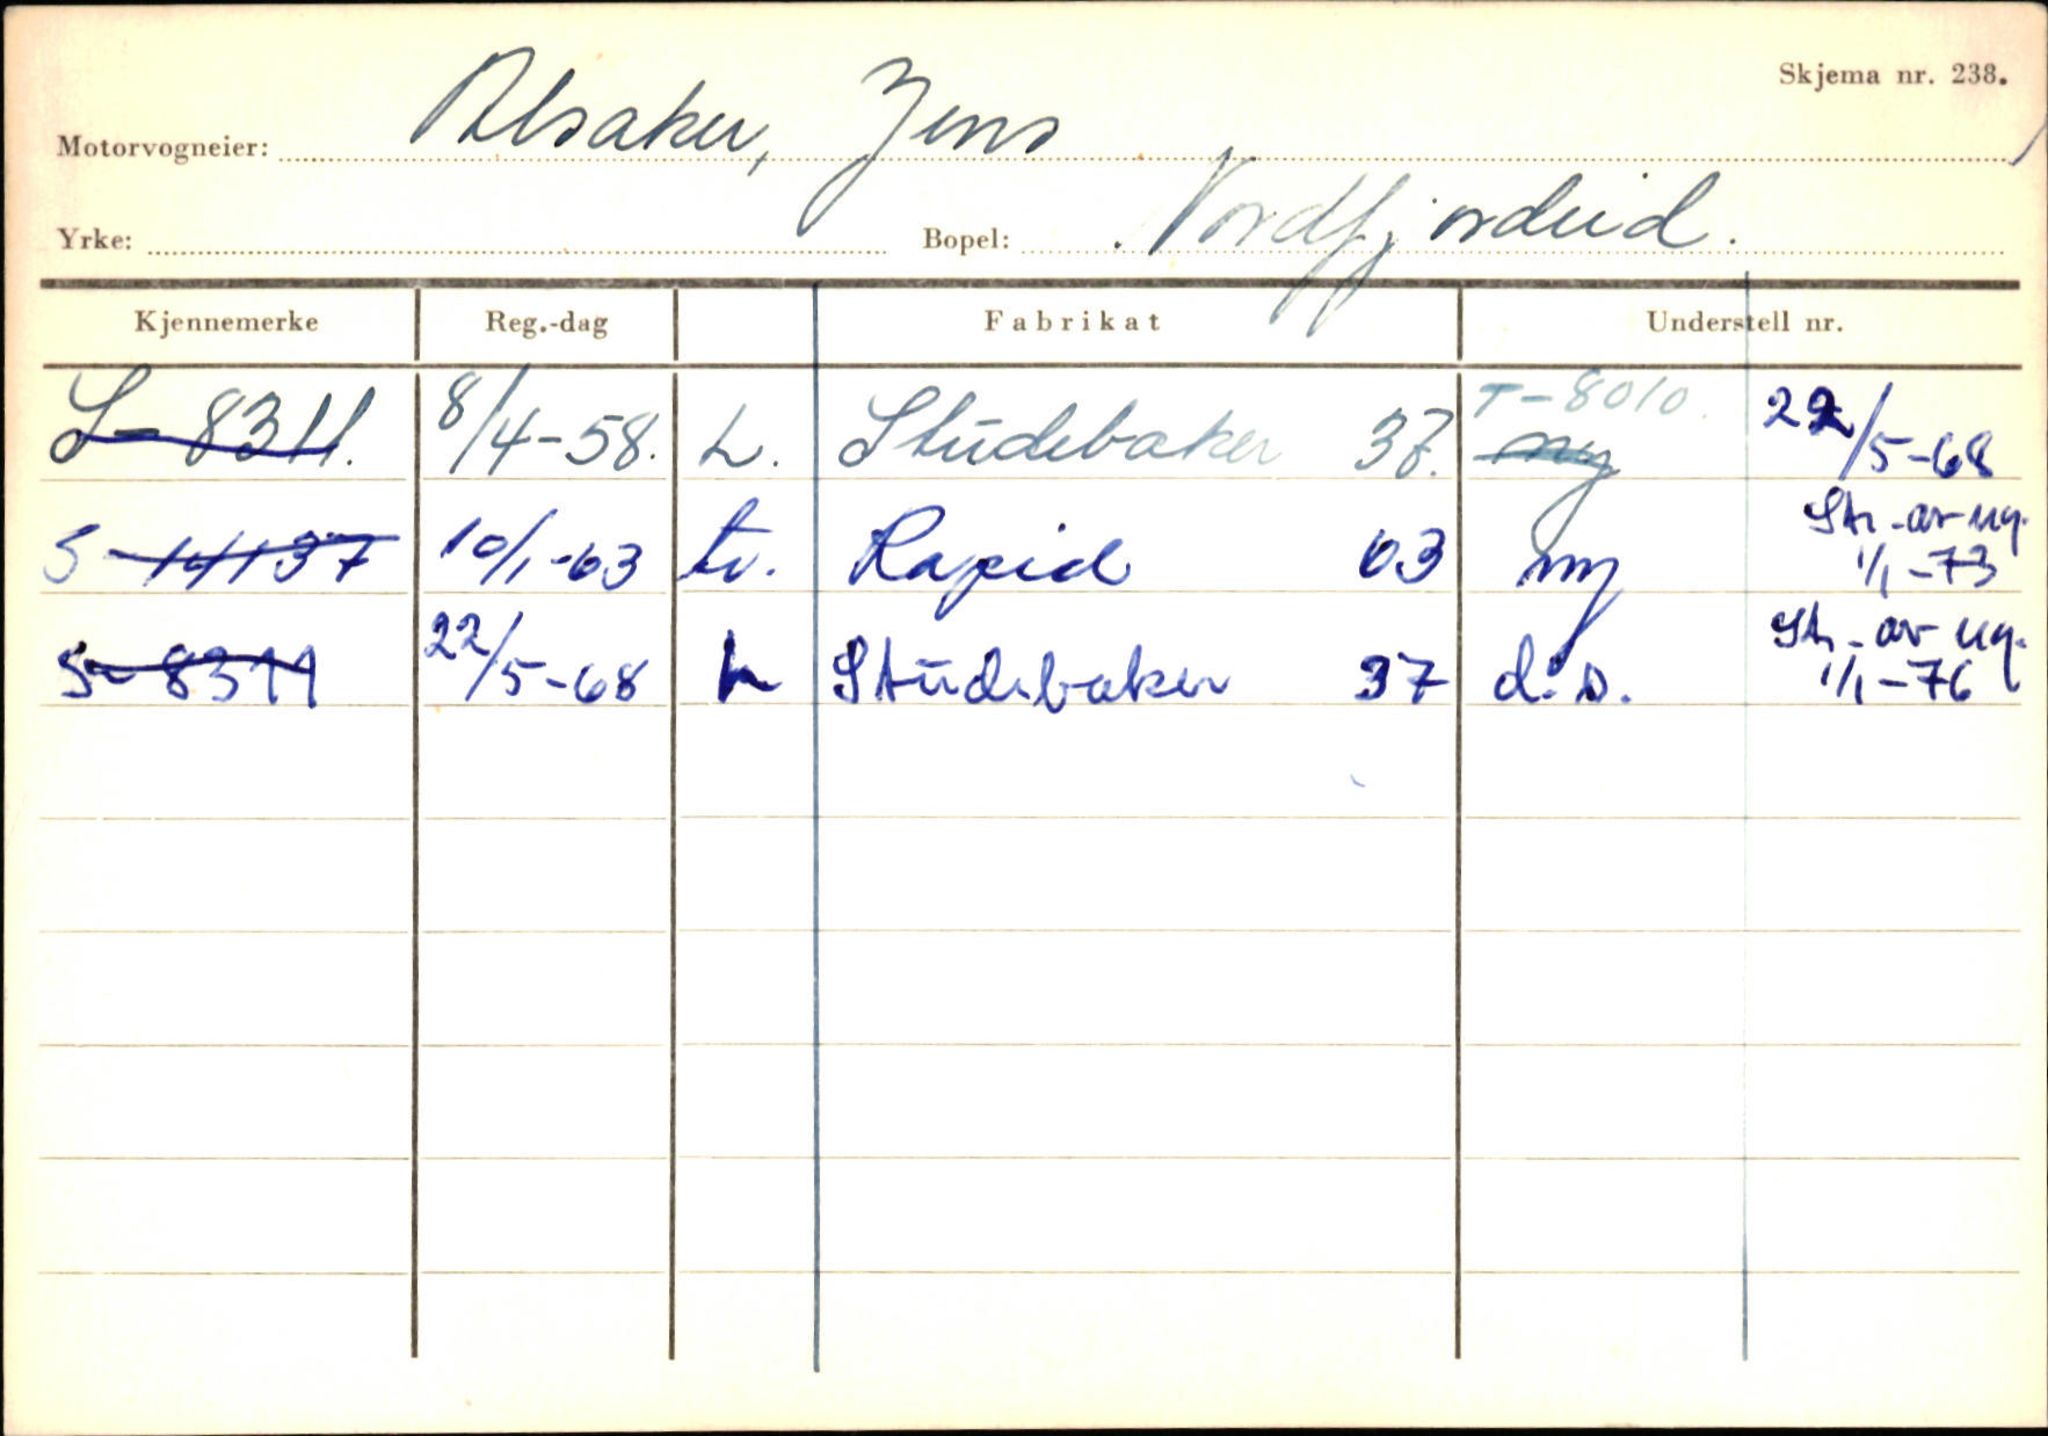 Skjema nr. 238.
Motorvogneier: Alsaker, Jens
Yrke: Bopel: Nordfjordeid.
Kjennemerke Reg.-dag Fabrikat Understell nr.
S-8311. 8/4-58. L. Studebaker 37. T-8010. ny 22/5-68
S-14137 10/1-63 tv. Rapid 63 ny Str. av ug. 1/1-73
S-8311 22/5-68 L Studebaker 37 d.s. Str. av ug. 1/1-76